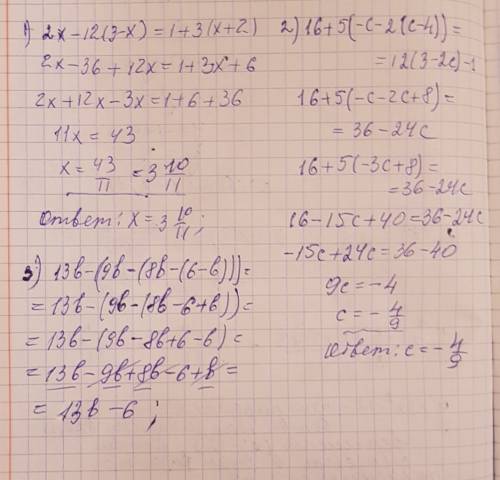 1) 2x-12(3-x)=1+3(x+2)
2x-36+12x=1+3x+6
2x+12x-3x=1+6+36
11x=43
x=43/11=3 10/11
Ответ: x=3 10/11;
2) 16+5(-c-2(c-4))=
=12(3-2c)-
16+5(-c-2c+8)=
=36-24c
16+5(-3c+8)=
=36-24c
16-15c+40=36-24c
-15c+24c=36-40
9c=-4
c=-4/9
Ответ: c=-4/9
3) 13b-(9b-(8b-(6-b)))=
=13b-(9b-(8b-6+b))=
=13b-(9b-8b+6-b)=
=13b-9b+8b-6+b=
=13b-6;